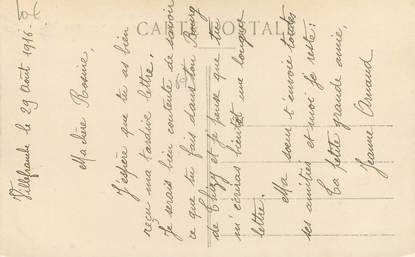 CARTE POSTALE
Villefranche le 29 Août 1916 -
Ma chère Rosine,
J'espère que tu as bien
reçu ma tardive lettre.
Je serais bien contente de savoir
ce que tu fais dans ton Bourg
de Thizy et je pense que tu
m'écriras bientôt une longue
lettre.
Ma soeur t'envoie toutes
ses amitiés et moi je reste:
Ta petite grande amie,
Jeanne Arnaud